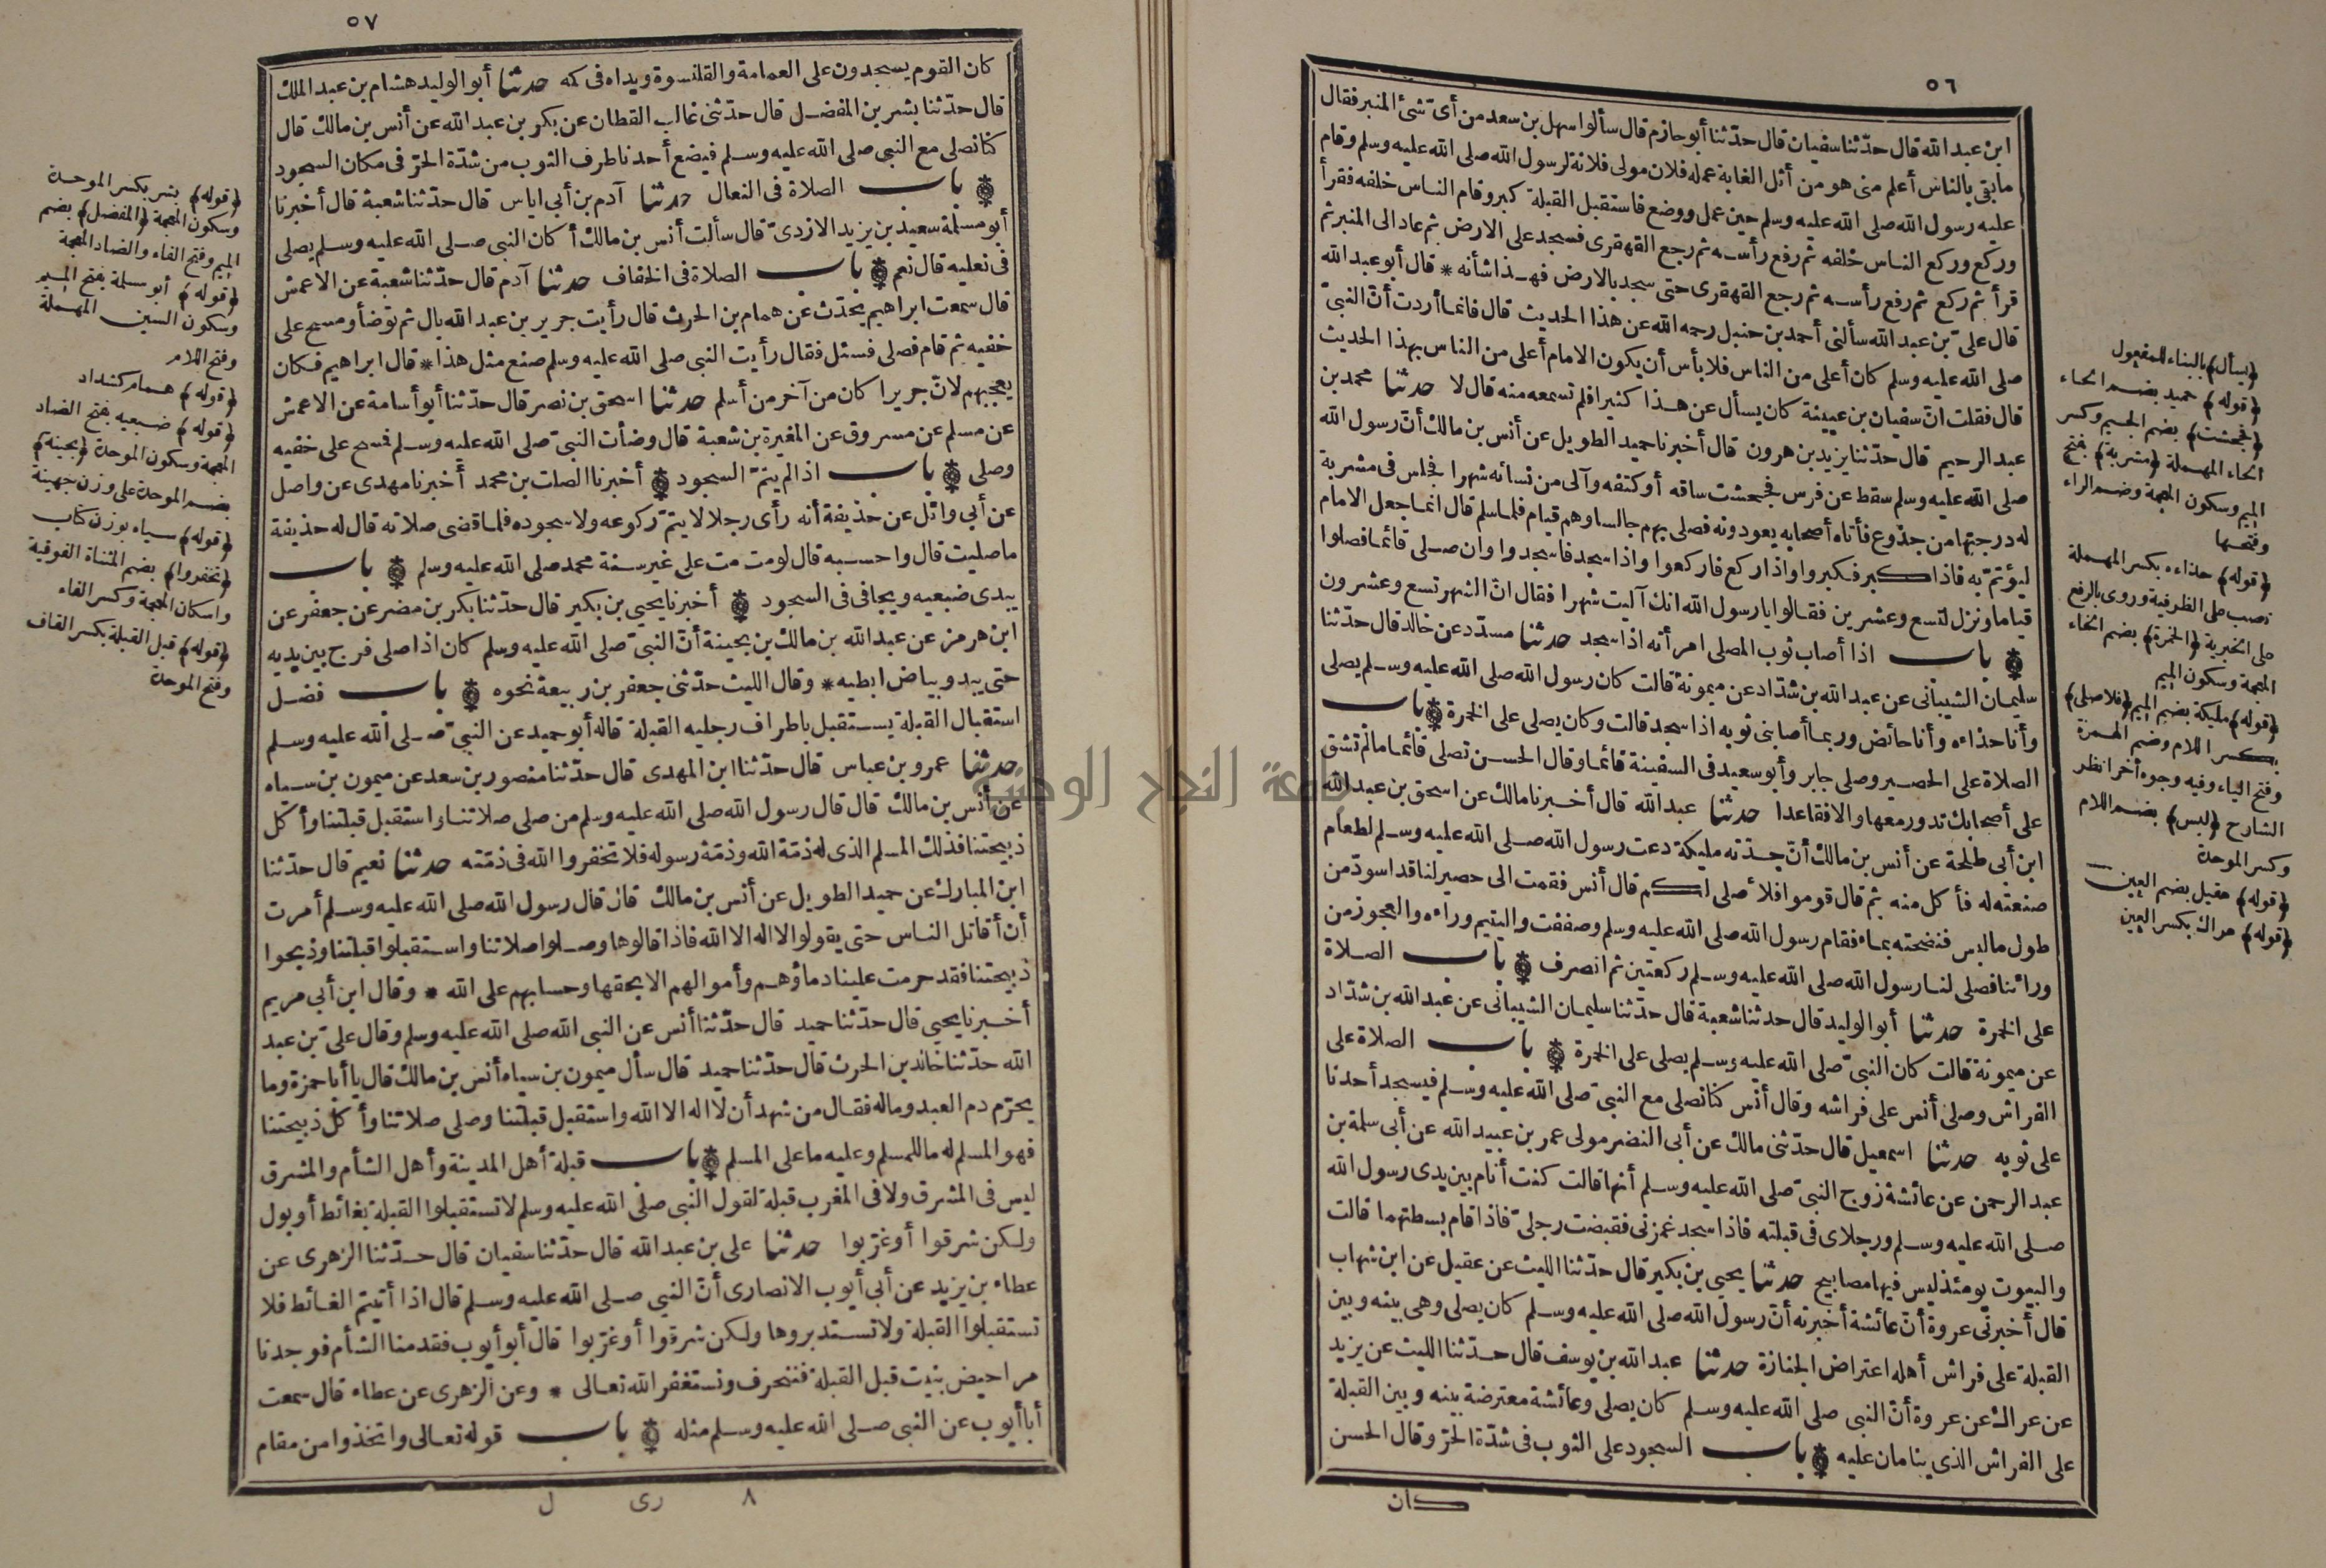 ٥٦
ابن عبد الله قال حدّثنا سفيان قال حدّثنا أبو حازم قال سألوا سهل بن سعد من أىّ شئ المنبر فقال
ما بقى بالناس أعلم منى هو من أثل الغابة عمله فلان مولى فلانة لرسول الله صلى الله عليه وسلم وقام
عليه رسول الله صلى الله عليه وسلم حين عمل ووضع فاستقبل القبلة كبر وقام الناس خلفه فقرأ
وركع وركع الناس خلفه ثم رفع رأسه ثم رجع القهقرى فسجد على الارض ثم عاد الى المنبر ثم
قرأ ثم ركع ثم رفع رأسه ثم رجع القهقرى حتى سجد بالارض فهذا شأنه * قال أبو عبد الله
قال علىّ بن عبد الله سألنى أحمد بن حنبل رحمه الله عن هذا الحديث قال فانما أردت أنّ النبىّ
صلى الله عليه وسلم كان أعلى من الناس فلا بأس أن يكون الامام أعلى من الناس بهذا الحديث
قال فقلت انّ سفيان بن عيينة كان يسأل عن هذا كثيرا فلم تسمعه منه قال لا حدثنا محمد بن
عبد الرحيم قال حدّثنا يزيد بن هرون قال أخبرنا حميد الطويل عن أنس بن مالك أنّ رسول الله
صلى الله عليه وسلم سقط عن فرس فجحشت ساقه أو كتفه وآلى من نسائه شهرا فجلس فى مشربة
له درجتها من جذوع فأتاه أصحابه يعودونه فصلى بهم جالسا وهم قيام فلما سلم قال انما جعل الامام
ليؤتمّ به فاذا كبر فكبروا واذا ركع فاركعوا واذا سجد فاسجدوا وان صلى قائما فصلوا
قياما ونزل لتسع وعشرين فقالوا يا رسول الله انك آليت شهرا فقال انّ الشهر تسع وعشرون
باب اذا أصاب ثوب المصلى امرأته اذا سجد حدثنا مسدّد عن خالد قال حدّثنا
سليمان الشيبانى عن عبد الله بن شدّاد عن ميمونة قالت كان رسول الله صلى الله عليه وسلم يصلى
وأنا حذاءه وأنا حائض وربما أصابنى ثوبه اذا سجد قالت وكان يصلى على الخمرة باب
الصلاة على الحصير وصلى جابر وأبو سعيد فى السفينة قائما وقال الحسن تصلى قائما ما لم تشق
على أصحابك تدور معها والا فقاعدا حدثنا عبد الله قال أخبرنا مالك عن اسحق بن عبد الله
ابن أبى طلحة عن أنس بن مالك أنّ جدّته مليكة دعت رسول الله صلى الله عليه وسلم لطعام
صنعته له فأكل منه ثم قال قوموا فلاصلى لكم قال أنس فقمت الى حصير لنا قد اسودّ من
طول ما لبس فنضحته بماء فقام رسول الله صلى الله عليه وسلم وصففت واليتيم وراءه والعجوز من
ورائنا فصلى لنا رسول الله صلى الله عليه وسلم ركعتين ثم انصرف باب الصلاة
على الخمرة حدثنا أبو الوليد قال حدثنا شعبة قال حدّثنا سليمان الشيبانى عن عبد الله بن شدّاد
عن ميمونة قالت كان النبىّ صلى الله عليه وسلم يصلى على الخمرة باب الصلاة على
الفراش وصلى أنس على فراشه وقال أنس كنا نصلى مع النبىّ صلى الله عليه وسلم فيسجد أحدنا
على ثوبه حدثنا اسمعيل قال حدّثنى مالك عن أبى النضر مولى عمر بن عبيد الله عن أبى سلمة بن
عبد الرحمن عن عائشة زوج النبىّ صلى الله عليه وسلم أنها قالت كنت أنام بين يدى رسول الله
صلى الله عليه وسلم ورجلاى فى قبلته فاذا سجد غمزنى فقبضت رجلىّ فاذا قام بسطتهما قالت
والبيوت يومئذ ليس فيها مصابيح حدثنا يحيى بن بكير قال حدّثنا الليث عن عقيل عن ابن شهاب
قال أخبرنى عروة أنّ عائشة أخبرته أنّ رسول الله صلى الله عليه وسلم كان يصلى وهى بينه وبين
القبلة على فراش أهله اعتراض الجنازة حدثنا عبد الله بن يوسف قال حدّثنا الليث عن يزيد
عن عراك عن عروة أنّ النبى صلى الله عليه وسلم كان يصلى وعائشة معترضة بينه وبين القبلة
على الفراش الذى ينامان عليه باب السجود على الثوب فى شدّة الحرّ وقال الحسن
كان
﴿يسأل﴾ بالبناء للمفعول
﴿قوله﴾ حميد بضم الحاء
﴿فجحشت﴾ بضم الجيم وكسر
الحاء المهملة ﴿مشربة﴾ بفتح
الميم وسكون المعجمة وضم الراء
وفتحها
﴿قوله﴾ حذاءه بكسر المهملة
نصب على الظرفية وروى بالرفع
على الخبرية ﴿الخمرة﴾ بضم الخاء
المعجمة وسكون الميم
﴿قوله﴾ مليكة بضم الميم ﴿فلاصلى﴾
بكسر اللام وضم الهمزة
وفتح الياء وفيه وجوه أخر انظر
الشارح ﴿لبس﴾ بضم اللام
وكسر الموحدة
﴿قوله﴾ عقيل بضم العين
﴿قوله﴾ عراك بكسر العين
٥٧
كان القوم يسجدون على العمامة والقلنسوة ويداه فى كمه حدثنا أبو الوليد هشام بن عبد الملك
قال حدّثنا بشر بن المفضل قال حدّثنى غالب القطان عن بكر بن عبد الله عن أنس بن مالك قال
كنا نصلى مع النبى صلى الله عليه وسلم فيضع أحدنا طرف الثوب من شدّة الحرّ فى مكان السجود
باب الصلاة فى النعال حدثنا آدم بن أبى اياس قال حدّثنا شعبة قال أخبرنا
أبو مسلمة سعيد بن يزيد الازدىّ قال سألت أنس بن مالك أكان النبى صلى الله عليه وسلم يصلى
فى نعليه قال نعم باب الصلاة فى الخفاف حدثنا آدم قال حدّثنا شعبة عن الاعمش
قال سمعت ابراهيم يحدّث عن همام بن الحرث قال رأيت جرير بن عبد الله بال ثم توضأ ومسح على
خفيه ثم قام فصلى فسئل فقال رأيت النبى صلى الله عليه وسلم صنع مثل هذا * قال ابراهيم فكان
يعجبهم لانّ جريرا كان من آخر من أسلم حدثنا اسحق بن نصر قال حدّثنا أبو أسامة عن الاعمش
عن مسلم عن مسروق عن المغيرة بن شعبة قال وضأت النبىّ صلى الله عليه وسلم فمسح على خفيه
وصلى باب اذا لم يتمّ السجود أخبرنا الصلت بن محمد أخبرنا مهدى عن واصل
عن أبى وائل عن حذيفة أنه رأى رجلا لا يتمّ ركوعه ولا سجوده فلما قضى صلاته قال له حذيفة
ما صليت قال واحسبه قال لو مت مت على غير سنة محمد صلى الله عليه وسلم باب
يبدى ضبعيه ويجافى فى السجود أخبرنا يحيى بن بكير قال حدّثنا بكر بن مضر عن جعفر عن
ابن هرمز عن عبد الله بن مالك بن بحينة أنّ النبىّ صلى الله عليه وسلم كان اذا صلى فرج بين يديه
حتى يبدو بياض ابطيه * وقال الليث حدّثنى جعفر بن ربيعة نحوه باب فضل
استقبال القبلة يستقبل باطراف رجليه القبلة قاله أبو حميد عن النبىّ صلى الله عليه وسلم
حدثنا عمرو بن عباس قال حدّثنا ابن المهدى قال حدّثنا منصور بن سعد عن ميمون بن سياه
عن أنس بن مالك قال قال رسول الله صلى الله عليه وسلم من صلى صلاتنا واستقبل قبلتنا وأكل
ذبيحتنا فذلك المسلم الذى له ذمّة الله وذمّة رسوله فلا تخفروا الله فى ذمّته حدثنا نعيم قال حدّثنا
ابن المبارك عن حميد الطويل عن أنس بن مالك قال قال رسول الله صلى الله عليه وسلم أمرت
أن أقاتل الناس حتى يقولوا لا اله الا الله فاذا قالوها وصلوا صلاتنا واستقبلوا قبلتنا وذبحوا
ذبيحتنا فقد حرمت علينا دماؤهم وأموالهم الا بحقها وحسابهم على الله * وقال ابن أبى مريم
أخبرنا يحيى قال حدّثنا حميد قال حدّثنا أنس عن النبى صلى الله عليه وسلم وقال علىّ بن عبد
الله حدّثنا خالد بن الحرث قال حدّثنا حميد قال سأل ميمون بن سياه أنس بن مالك قال يا أبا حمزة وما
يحرّم دم العبد وماله فقال من شهد أن لا اله الا الله واستقبل قبلتنا وصلى صلاتنا وأكل ذبيحتنا
فهو المسلم له ما للمسلم وعليه ما على المسلم باب قبلة أهل المدينة وأهل الشأم والمشرق
ليس فى المشرق ولا فى المغرب قبلة لقول النبى صلى الله عليه وسلم لا تستقبلوا القبلة بغائط أو بول
ولكن شرقوا أو غرّبوا حدثنا على بن عبد الله قال حدّثنا سفيان قال حدّثنا الزهرى عن
عطاء بن يزيد عن أبى أيوب الانصارى أنّ النبى صلى الله عليه وسلم قال اذا أتيتم الغائط فلا
تستقبلوا القبلة ولا تستدبروها ولكن شرقوا أو غرّبوا قال أبو أيوب فقدمنا الشأم فوجدنا
مراحيض بنيت قبل القبلة فننحرف ونستغفر الله تعالى * وعن الزهرى عن عطاء قال سمعت
أبا أيوب عن النبى صلى الله عليه وسلم مثله باب قوله تعالى واتخذوا من مقام
٨ رى ل
﴿قوله﴾ بشر بكسر الموحدة
وسكون المعجمة ﴿المفضل﴾ بضم
الميم وفتح الفاء والضاد المعجمة
﴿قوله﴾ أبو مسلمة بفتح الميم
وسكون السين المهملة
وفتح اللام
﴿قوله﴾ همام كشداد
﴿قوله﴾ ضبعيه بفتح الضاد
المعجمة وسكون الموحدة ﴿بحينة﴾
بضم الموحدة على وزن جهينة
﴿قوله﴾ سياه بوزن كتاب
﴿تخفروا﴾ بضم المثناة الفوقية
واسكان المعجمة وكسر الفاء
﴿قوله﴾ قبل القبلة بكسر القاف
وفتح الموحدة
جامعة النجاح الوطنية